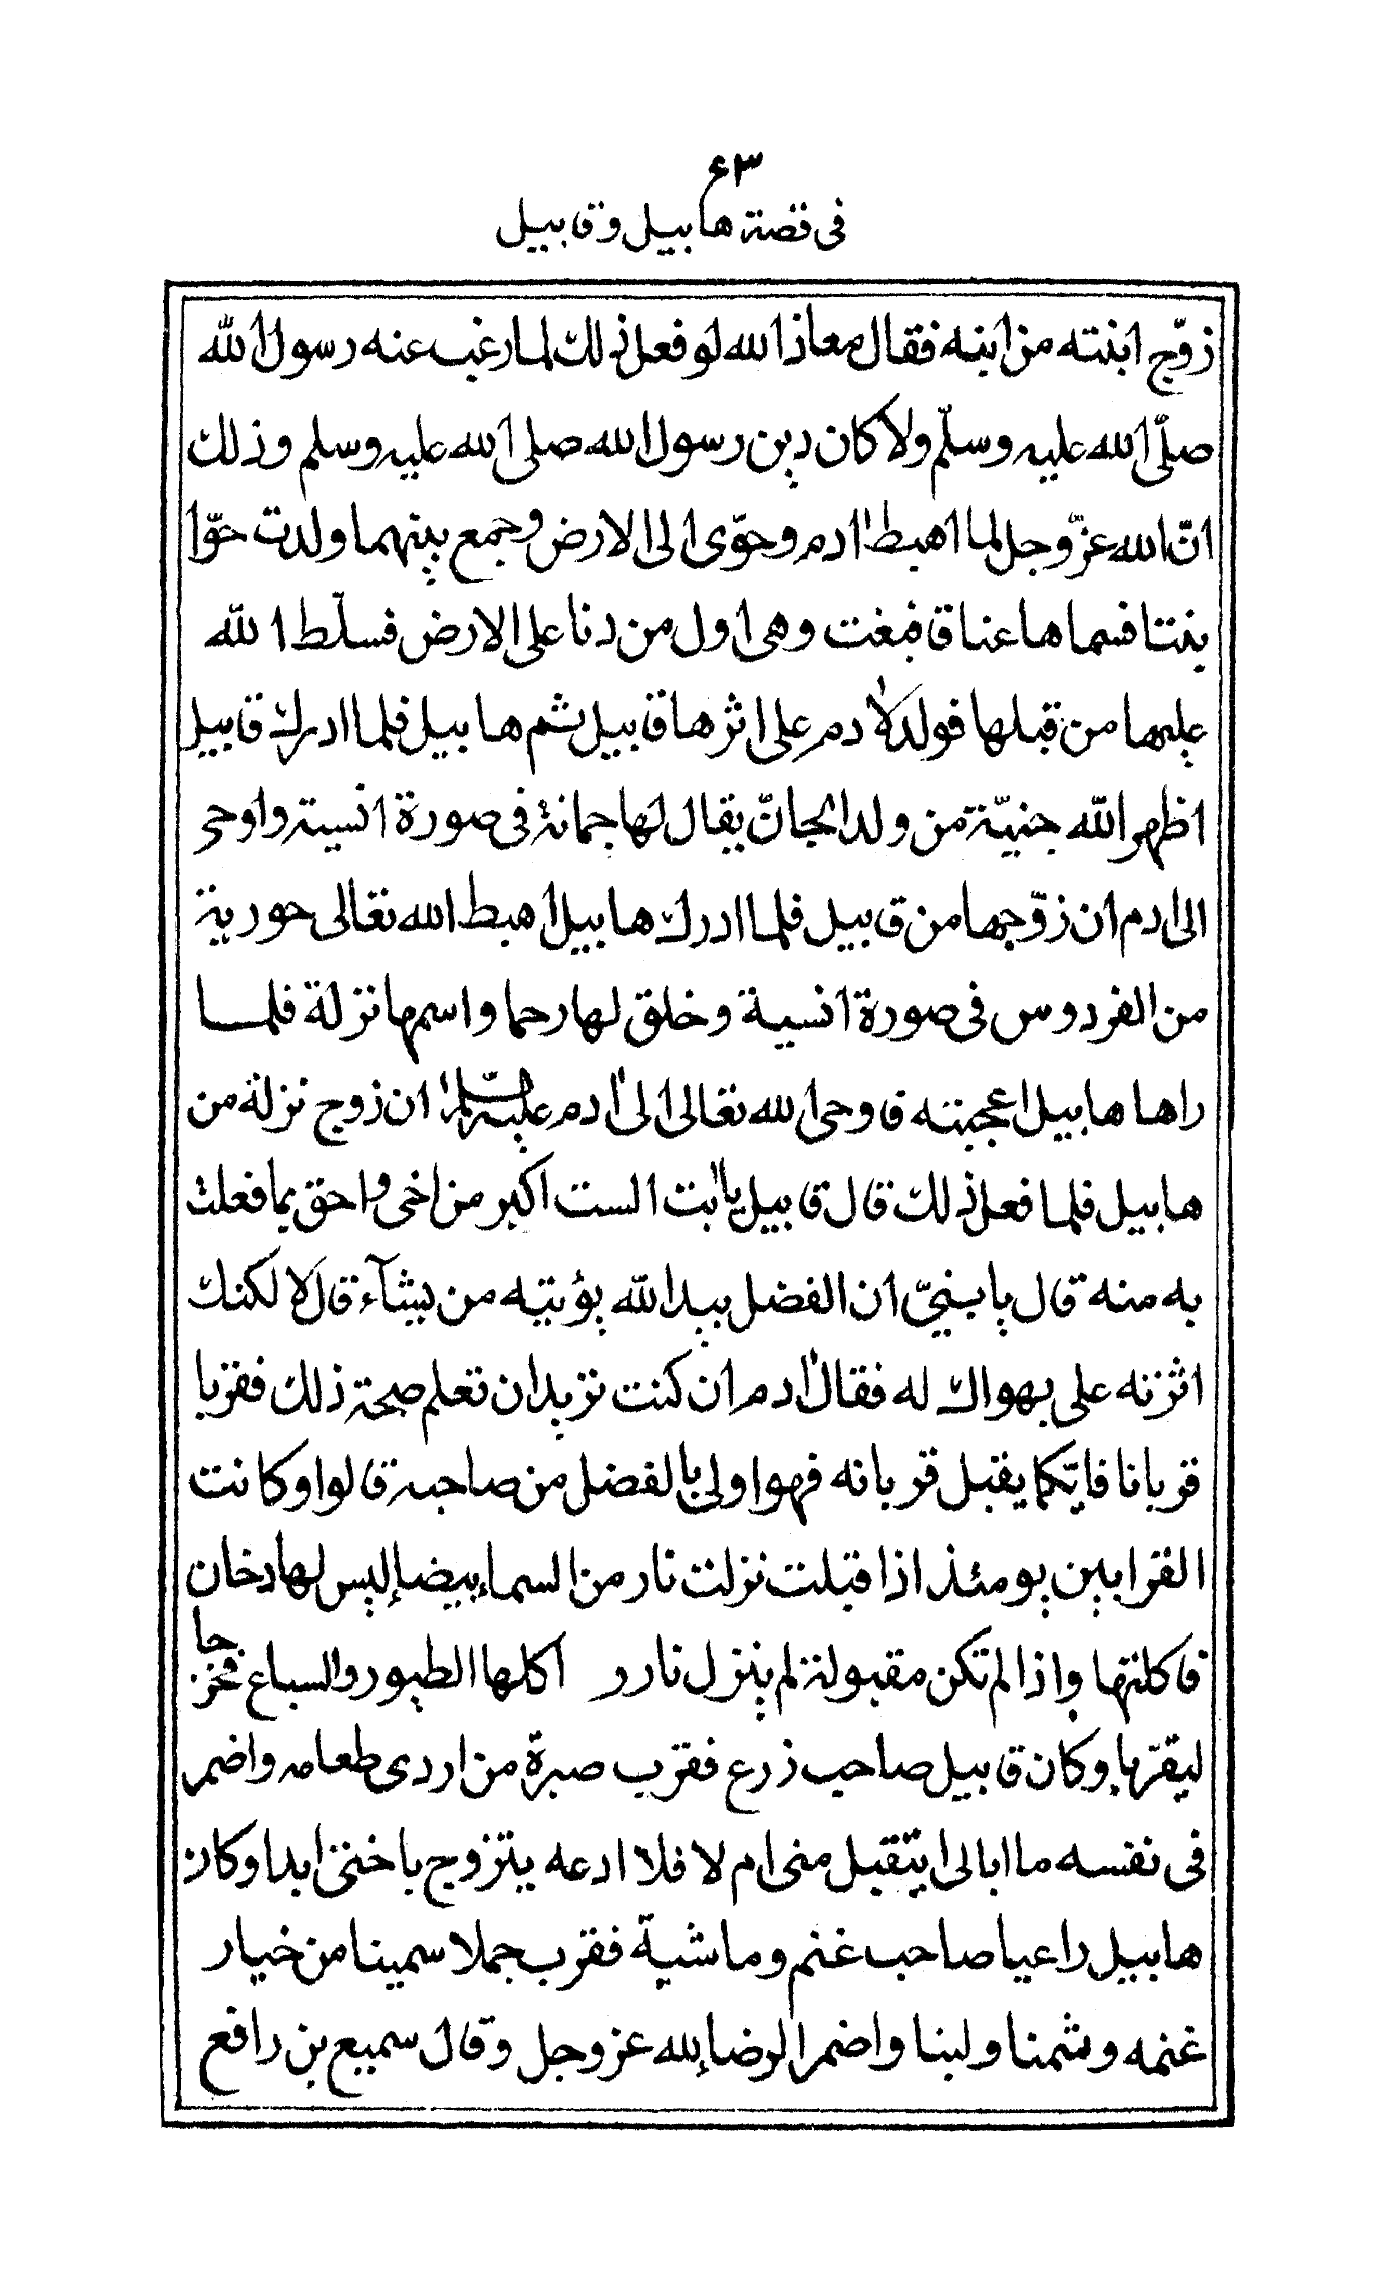 ٦٣
فى قصة هابيل وقابيل
زوّج ابنته من ابنه فقال معاذ الله لو فعل ذلك لما رغب عنه رسول الله
صلّى الله عليه وسلّم ولا كان دين رسول الله صلى الله عليه وسلم وذلك
انّ الله عزّ وجل لما اهبط ادم وحوّى الى الارض وجمع بينهما ولدت حوّا
بنتا فسماها عناق فبغت وهى اول من دنا على الارض فسلّط الله
عليها من قبلها فولد لادم على اثرها قابيل ثم هابيل فلما ادرك قابيل
اظهر الله جنيّة من ولد الجانّ يقال لها جمانة فى صورة انسية واوحى
الى ادم ان زوّجها من قابيل فلما ادرك هابيل اهبط الله تعالى حورية
من الفردوس فى صورة انسية وخلق لها رحما واسمها نزلة فلما
راها هابيل اعجبته فاوحى الله تعالى الى ادم عليه السّلم ان زوج نزلة من
هابيل فلما فعل ذلك قال قابيل يا ابت الست اكبر من اخى واحق بما فعلت
به منه قال يا بنيّ ان الفضل بيد الله يؤتيه من يشآء قال لا لكنك
اثرته على بهواك له فقال ادم ان كنت تريد ان تعلم صحة ذلك فقربا
قربانا فايّكما يقبل قربانه فهو اولى بالفضل من صاحبه قالوا وكانت
القرابين يومئذ اذا قبلت نزلت نار من السماء بيضاء ليس لها دخان
فاكلتها واذا لم تكن مقبولة لم ينزل نار و اكلها الطيور والسباع فخرجا
ليقرّبا وكان قابيل صاحب زرع فقرّب صبرة من اردى طعامه واضمر
فى نفسه ما ابالى ايتقبل منى ام لا فلا ادعه يتزوج باختى ابدا وكان
هابيل راعيا صاحب غنم وماشية فقرب جملا سمينا من خيار
غنمه وشمنا ولبنا واضمر الرضاء لله عز وجل وقال سميع بن رافع